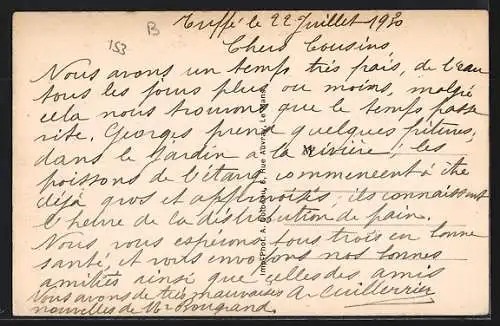 Tuffé le 22 Juillet 1920
B
153
Chers Cousins,
Nous avons un temps très frais, de l'eau
tous les jours plus ou moins, malgré
cela nous trouvons que le temps passe
vite. Georges prend quelques fritures,
dans le Jardin à la rivière; les
poissons de l'étang commencent à être
déjà gros et apprivoisés; ils connaissent
l'heure de la distribution de pain.
Nous vous espérons tous trois en bonne
santé, et vous envoyons nos bonnes
amitiés ainsi que celles des amis
A. Cuillerier
Nous avons de très mauvaises
nouvelles de Mr Bougrand.
Imp. Phot. A. Rue Auvray, Le Mans